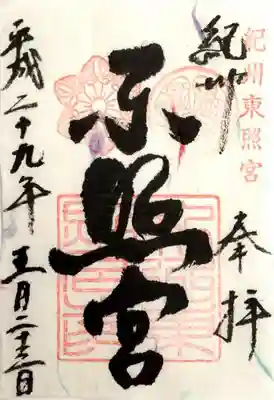 紀州東照宮
紀州
奉拝
東照宮
平成二十九年
五月二十三日